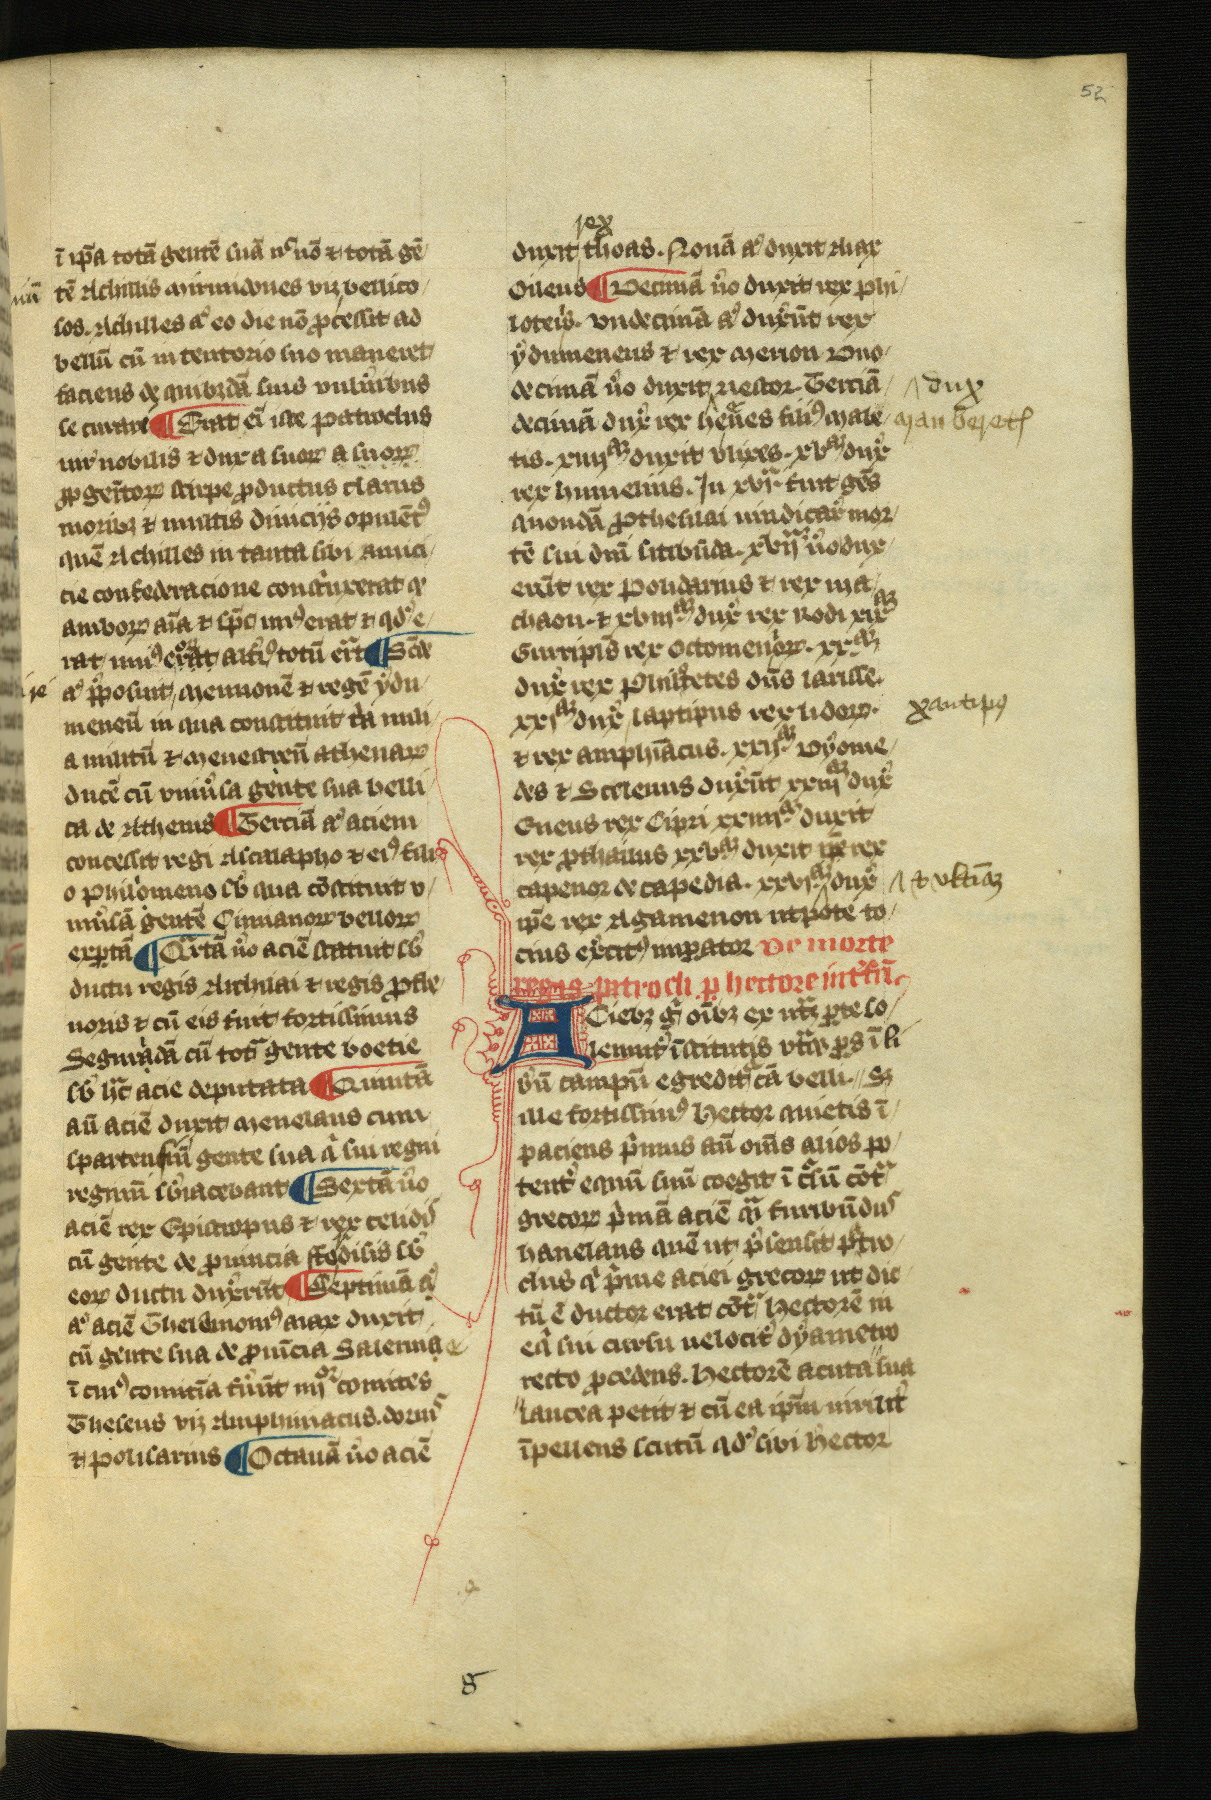 52
ī ip̄a totā gentē suā nᶜ nō ⁊ totā gē
tē Achillis mirmidones viz bellico
sos. Achilles aͧ eo die nō ꝓcessit ad
bellū cū in tentorio suo maneret
faciens de quibzdā suis vulneribus
se curare ¶ Erat eī iste patroclus
uir nobilis ⁊ dux a suoꝝ a suoꝝ
ꝓgenitoꝝ stirpe ꝓductus clarus
moribz ⁊ multis diuicijs opulētꝰ
quē Achilles in tanta sibi amici
cie confederacione coniūxerat ꝙ
amboꝝ aīa ⁊ sp̄c unꝰ erat ⁊ qd e
rat unīꝰ erat altiꝰ totū erat ¶ Scdā
aͧ p̄posuit Mennonē ⁊ regē ydu
meneū in qua constituit tria mili
a militū ⁊ Menesteū athenaꝝ
ducē cū vniūsa gente sua belli
ca de Athenis ¶ Terciā aͧ aciem
concessit regi Ascalapho ⁊ eiꝰ fili
o Philomeno sb qua cōstituit v
niūsā gentē Cumanoꝝ belloꝝ
expertā ¶ Qrtā ūo aciē statuit sb
ductu regis Archilai ⁊ regis ꝓthe
noris ⁊ cū eis fuit fortissimus
Segurādā cū tota gente boetie
sb hᶜ acie deputata ¶ Quintā
aū aciē duxit Menelaus cum
spartensiū gente sua q̄ sui regni
regimī sbiacebant ¶ Sextā ūo
aciē rex Epistropus ⁊ rex celidiꝰ
cū gente de ꝓuincia fodilis sb
eoꝝ ductu duxerūt ¶ Septimā aͧ
aͧ aciē Thelemoniꝰ aiax duxit
cū gente sua de ꝓuīcia Salemia
ī cuiꝰ comitīa fuerūt iiijᵒʳ comites
Theseus viz Amphimacus. doriuꝰ
⁊ polisarius ¶ Octauā ūo aciē
rex
duxit thoas. Nonā aͧ duxit Aiax
Oileus ¶ Decimā ūo duxit rex phi
loteis. vndecimā aͧ duxerūt rex
ydumeneus ⁊ rex merion Duo
decimā ūo duxit nestor. Terciā
dux
decimā dux rex heues filiꝰ male
tis. xiiijᵃᵐ duxit vlixes. xvᵃᵐ dux
rex humerius. In xvj. fuit gēs
quondā ꝓthesilai uindicare mor
tē sui dnī sitibūda. xvijᵃᵐ ūo dux
erūt rex Polidarius ⁊ rex ma
chaon. ⁊ xviijᵃᵐ dux rex Rodi xixᵃᵐ
Eurripid rex octomenioꝝ. xxᵃᵐ
dux rex Philitetes dūs larisse.
xxjᵃᵐ dux saptipus rex lidoꝝ.
xantipꝰ
⁊ rex amphiacus. xxijᵃᵐ Dyome
des ⁊ Stelenus duxerūt xxiijᵃᵐ dux
Eneus rex Cipri xxiiijᵃᵐ duxit
rex ꝓthailus xxvᵃᵐ duxit ip̄e rex
capenor de capedia. xxvjᵃᵐ dux
⁊ vltiāᵐ
ip̄e rex Agamenon utpote to
cius exercitꝰ imꝑator De morte
regis patrocli ꝑ hectorē int̄fc̄ī.
Aciebz gͦ oībz ex utᵃqz ꝑte so
lemnit̄ īstitutis vtraqz pars ī li
berū campū egreditur cā belli. Sz
ille fortissimꝰ Hector quietis ī
paciens pͥmus aū omīs alios po
tent̄ equū suū coegit ī cursū cōtͣ
grecoꝝ pͥmā aciē q̄ furibūdus
hanelans quē ut p̄sensit patro
clus q̄ pͥme aciei grecoꝝ ut dic
tū ē ductor erat cōtͣ Hectorē in
eq̄ sui cursu uelocit̄ dyametro
recto ꝓcedens. Hectorē acuta sua
lancea petit ⁊ cū ea ipm̄ inuasit
īpellens scutū qd sibi Hector
g